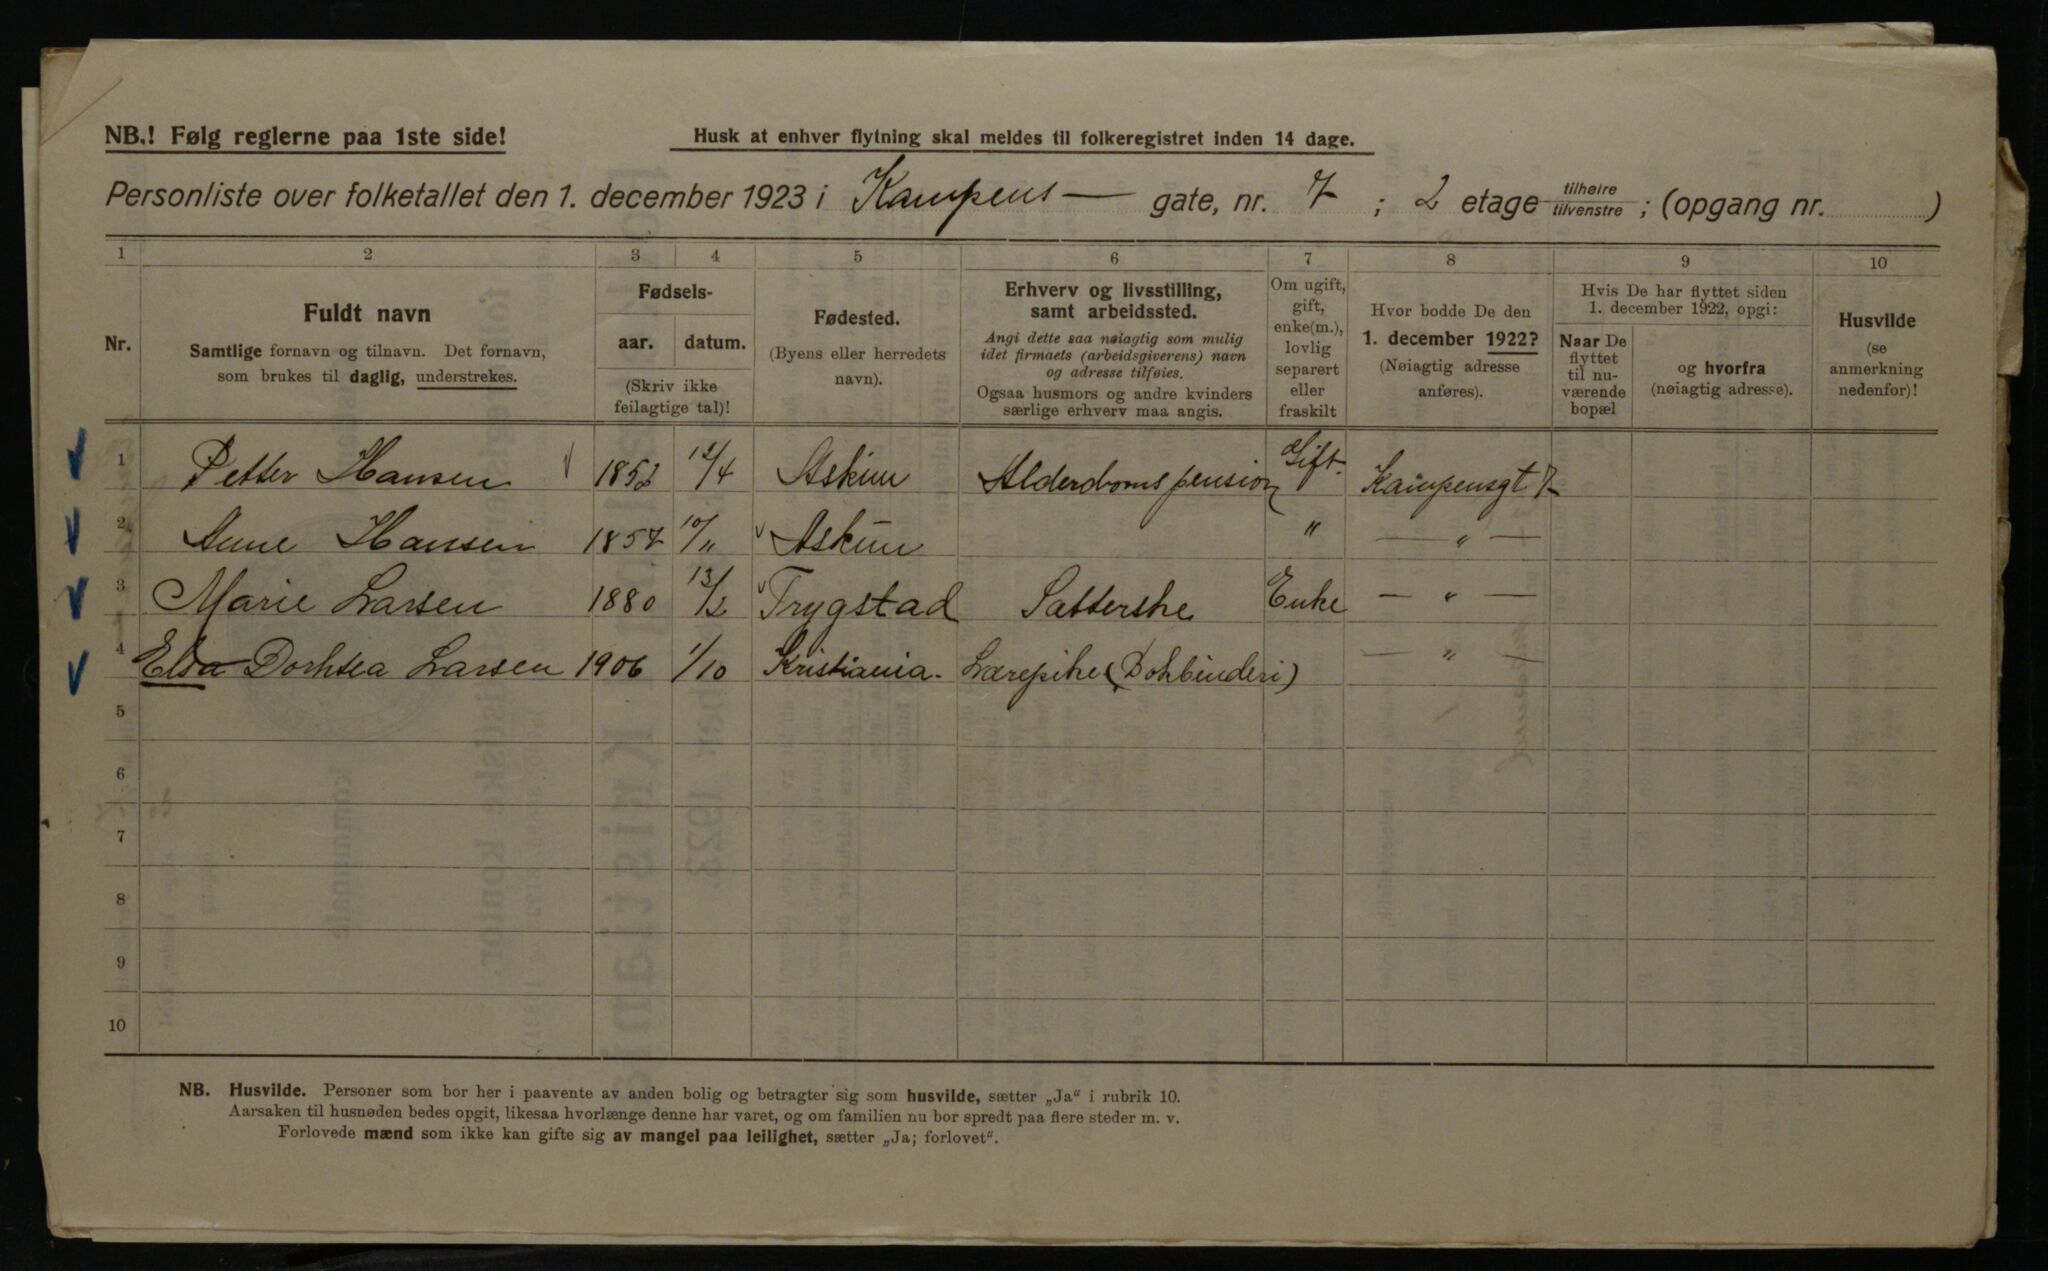 NB.! Følg reglerne paa 1ste side!
Husk at enhver flytning skal meldes til folkeregistret inden 14 dage.
Personliste over folketallet den 1. december 1923 i Kampens — gate, nr. 7 ; 2 etage tilhøire tilvenstre ; (opgang nr. )
1 2 3 4 5 6 7 8 9 10
Nr.
Fuldt navn
Samtlige fornavn og tilnavn. Det fornavn,
som brukes til daglig, understrekes.
Fødsels-
aar. datum.
(Skriv ikke
feilagtige tal)!
Fødested.
(Byens eller herredets
navn).
Erhverv og livsstilling,
samt arbeidssted.
Angi dette saa nøiagtig som mulig
idet firmaets (arbeidsgiverens) navn
og adresse tilføies.
Ogsaa husmors og andre kvinders
særlige erhverv maa angis.
Om ugift,
gift,
enke(m.),
lovlig
separert
eller
fraskilt
Hvor bodde De den
1. december 1922?
(Nøiagtig adresse
anføres).
Hvis De har flyttet siden
1. december 1922, opgi:
Naar De
flyttet
til nu-
værende
bopæl
og hvorfra
(nøiagtig adresse).
Husvilde
(se
anmerkning
nedenfor)!
1 Petter Hansen 1852 12/4 Askim Alderdomspension Gift. Kampensgt 7
2 Anne Hansen 1857 10/11 Askim " — " —
3 Marie Larsen 1880 13/2 Trygstad Sætterske Enke — " —
4 Elsa Dorhtea Larsen 1906 1/10 Kristiania. Lærepike (Bokbinderi) — " —
5
6
7
8
9
10
NB. Husvilde. Personer som bor her i paavente av anden bolig og betragter sig som husvilde, sætter „Ja“ i rubrik 10.
Aarsaken til husnøden bedes opgit, likesaa hvorlænge denne har varet, og om familien nu bor spredt paa flere steder m. v.
Forlovede mænd som ikke kan gifte sig av mangel paa leilighet, sætter „Ja; forlovet“.